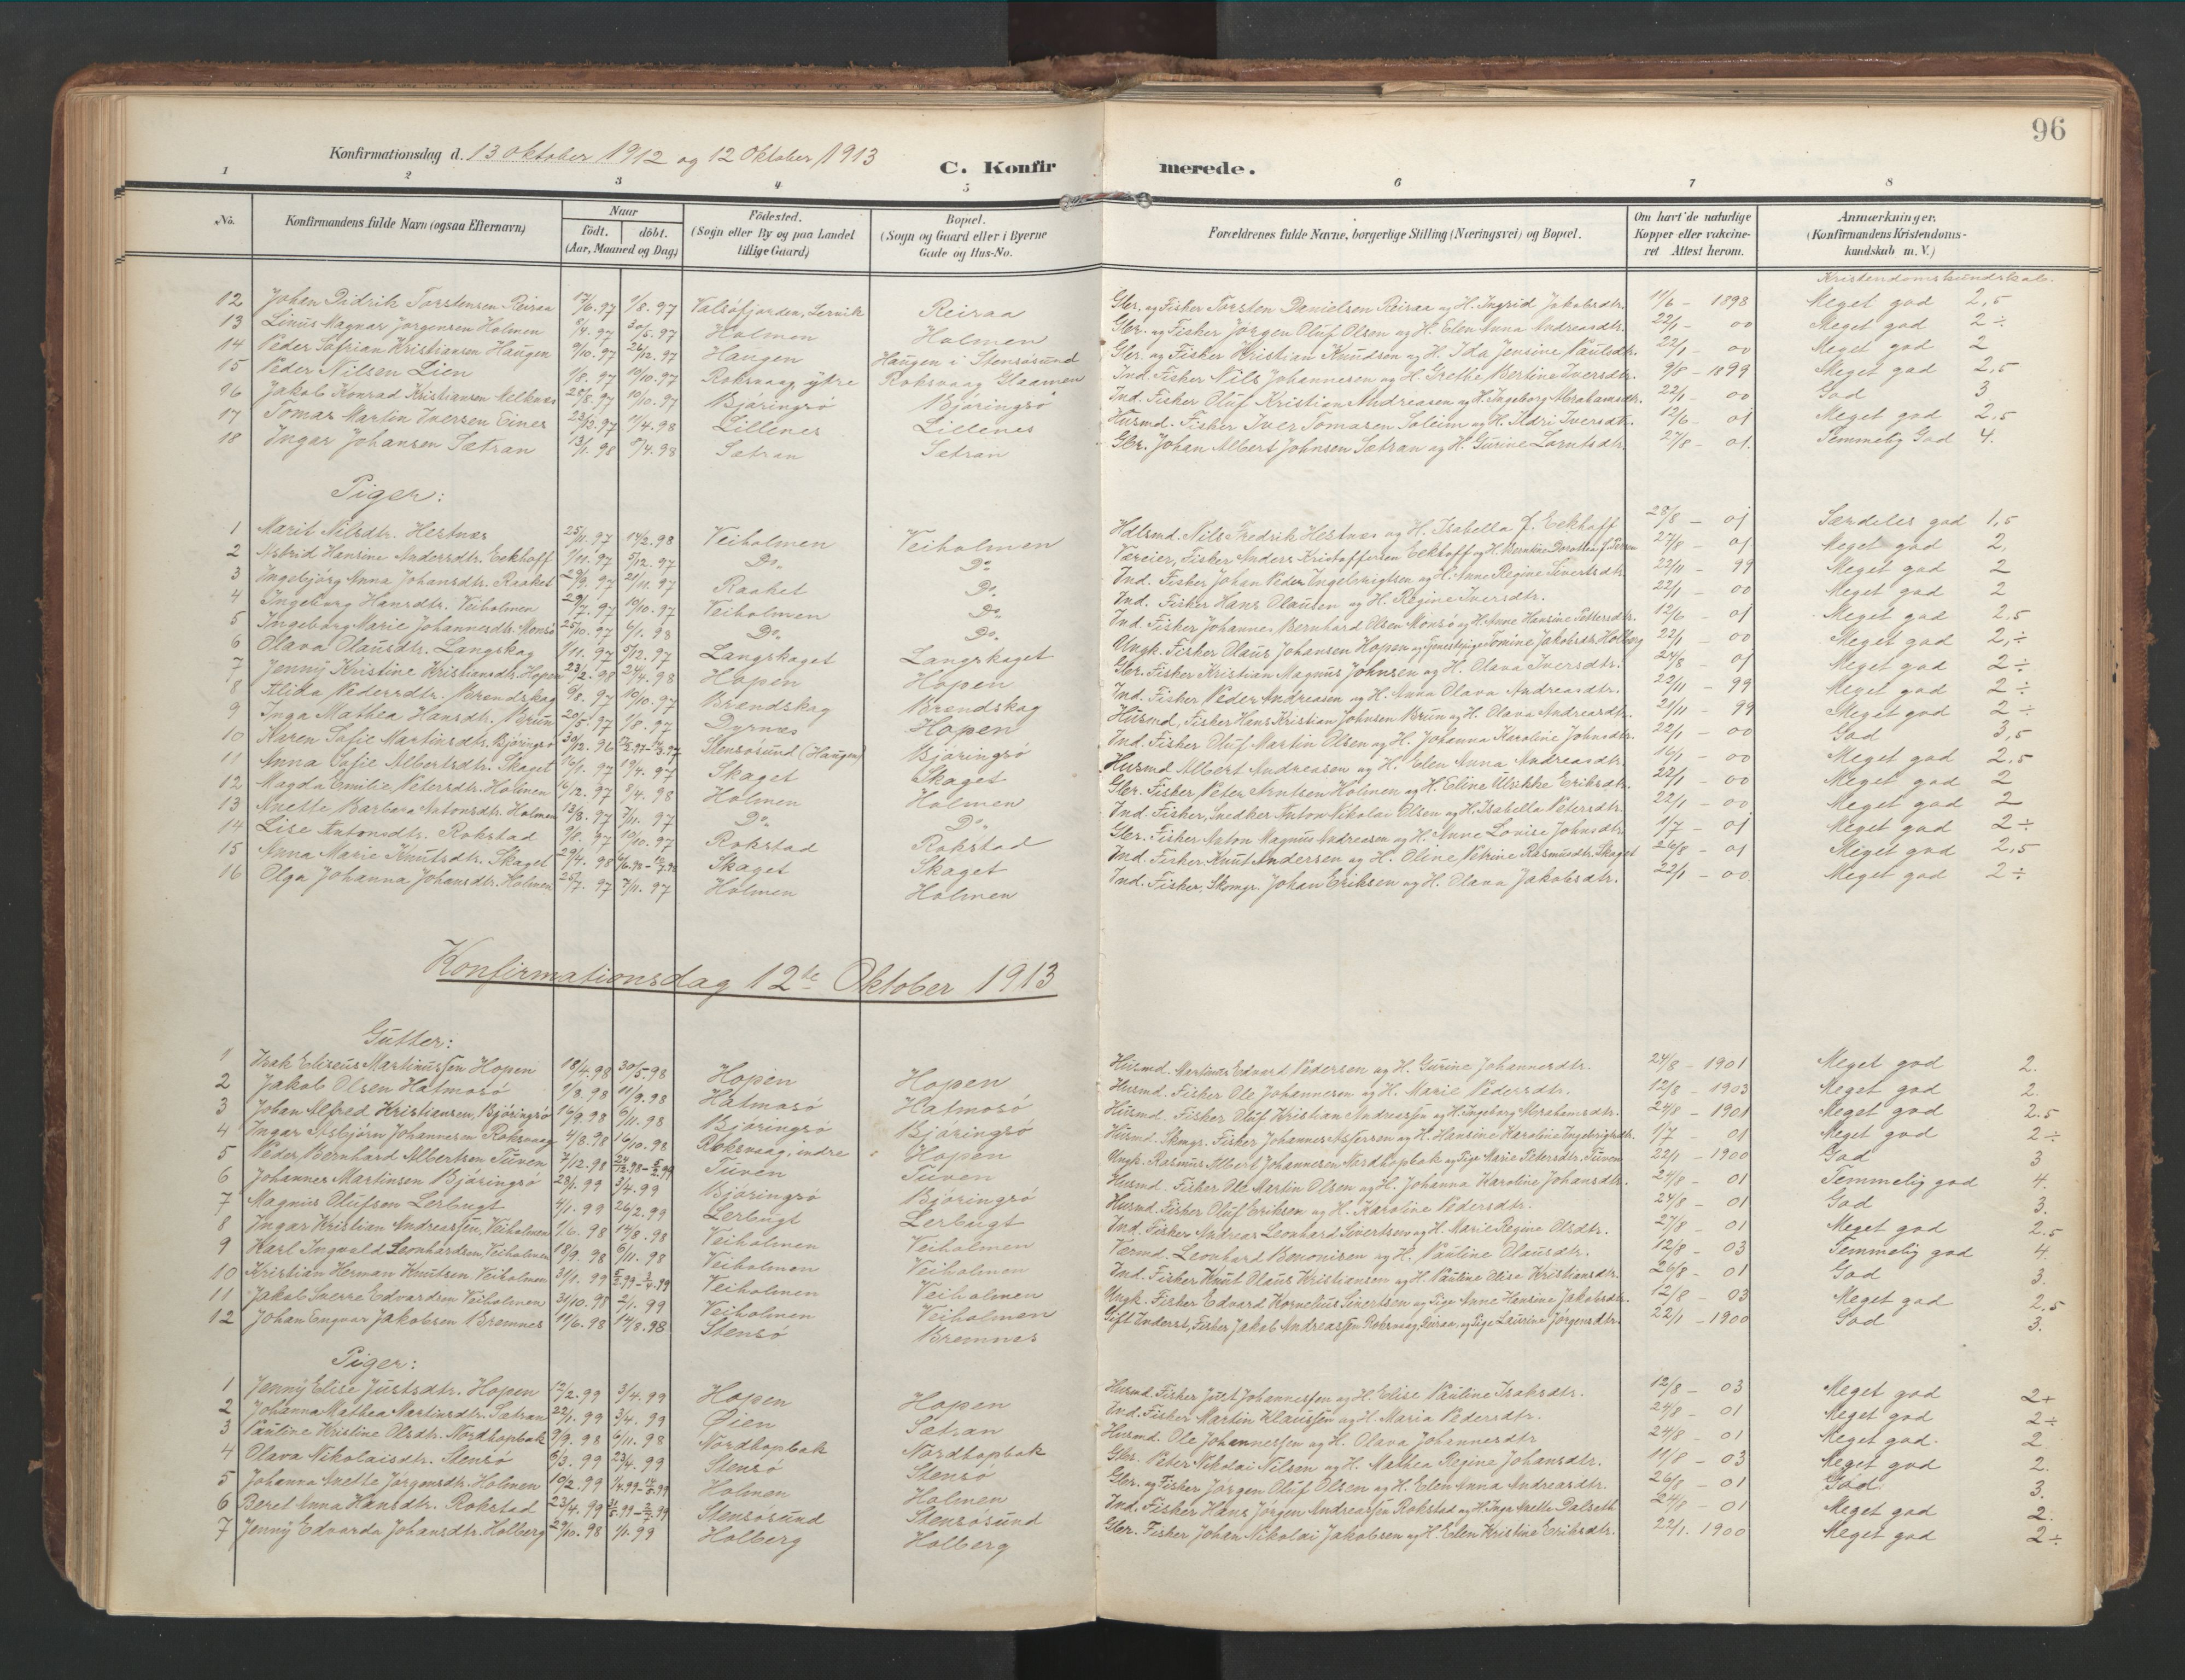 96
Konfirmationsdag d. 13 Oktober 1912 og 12 Oktober 1913
C. Konfirmerede.
1 2 3 4 5 6 7 8
No. Konfirmandens fulde Navn (ogsaa Efternavn) Naar födt. döbt. (Aar, Maaned og Dag) Födested. (Sogn eller By og paa Landet tillige Gaard) Bopæl. (Sogn og Gaard eller i Byerne Gade og Hus-No. Forældrenes fulde Navne, borgerlige Stilling (Næringsvei) og Bopæl. Om havt de naturlige Kopper eller vakcineret Attest herom. Anmærkninger. (Konfirmandens Kristendomskundskab m. V.)
Kristendomskundskab.
12 Johan Didrik Torstensen Reiraa 17/6.97 1/8.97 Valsöfjorden, Reiraa Gbr. og Fisker Torsten Danielsen Reiraa og H. Ingrid Jakobsdtr. 11/6 - 1898 Meget god 2,5
13 Linus Magnar Jørgensen Holmen 8/4.97 30/5.97 Holmen Holmen Gbr. og Fisker Jørgen Oluf Olsen og H. Elen Anna Andreasdtr. 22/1 - 00 Meget god 2÷
14 Peder Sofrian Kristiansen Haugen 9/10.97 26/12.97 Haugen Haugen i Stensösund Gbr. og Fisker Kristian Knudsen og H. Ida Jensine Paulsdtr. 22/1 - 00 Meget god 2
15 Peder Nilsen Lien 1/8.97 10/10.97 Roksvaag ytre Roksvaag Glaamen Ind. Fisker Nils Johannesen og H. Grethe Bertine Iversdtr. 9/8 - 1899 Meget god 2,5
16 Jakob Konrad Kristiansen 28/8.97 10/10.97 Björingsö Björingsö Ind. Fisker Oluf Kristian Andreasen og H. Ingeborg Abrahamsdtr. 22/1 - 00 God 3
17 Tomas Martin Iversen Einer 23/12.97 11/4.98 Lillenes Lillenes Husmd. Fisker Iver Tomasen Soleim og H. Ildri Iversdtr. 12/6 - 01 Meget god 2,5
18 Ingar Johansen Sætran 13/1.98 8/4.98 Sætran Sætran Gbr. Johan Albert Johnsen Sætran og H. Gurine Larntsdtr. 27/8 - 01. Temmelig God 4.
Piger:
1 Marit Nilsdtr. Hestnæs 25/11.97 14/2.98 Veiholmen Veiholmen Hdlsmd. Nils Fredrik Hestnæs og H. Isabella f. Eekhoff 28/8 - 01 Særdeles god 1,5
2 Astrid Hansine Andersdtr. Eekhoff 1/11.97 5/12.97 Do. Do. Væreier, Fisker Anders Kristoffersen Eekhoff og H. Berntine Dorothea f. 27/8 - 01 Meget god 2,
3 Ingebjörg Anna Johansdtr. Raaket 29/9.97 21/11.97 Raaket Do. Ind. Fisker Johan Peder Ingebrigtsen og H. Anne Regine Sivertsdtr. 22/11 - 99 Meget god 2
4 Ingeborg Hansdtr. Veiholmen 29/7.97 10/10.97 Veiholmen Do. Ind. Fisker Hans Olausen og H. Regine Iversdtr. 22/1 - 00 Meget god 2
5 Ingeborg Marie Johannesdtr. Monsö 25/10.97 6/1.98 Do. Do. Ind. Fisker Johannes Bernhard Olsen Monsö og H. Anne Hansine Pettersdtr. 12/6 - 01 Meget god 2,5
6 Olava Olausdtr. Langskag 1/11.97 5/12.97 Langskaget Langskaget Ungk. Fisker Olaus Johansen Hopen og Tjenestepige Tomine Jakobsdtr. Holberg 22/1 - 00 Meget god 2,÷
7 Jenny Kristine Kristiansdtr. Hopen 23/2.98 24/4.98 Hopen Hopen Gbr. Fisker Kristian Magnus Johnsen og H. Olava Iversdtr. 24/8 - 01 Meget god 2÷
8 Alida Pedersdtr. Brendskag 6/8.97 10/10.97 Brændskag Brændskag Ind. Fisker Peder Andreasen og H. Anna Olava Andreasdtr. 22/11 - 99 Meget god 2÷
9 Inga Mathea Hansdtr. Brun 20/5.97 1/8.97 Dyrnæs Hopen Husmd, Fisker Hans Kristian Johnsen Brun og H. Olava Andreasdtr. 21/11 - 99 Meget god 2÷
10 Karen Sofie Martinsdtr. Björingsö 30/12.96 Stensösund (Haugen) Björingsö Ind. Fisker Oluf Martin Olsen og H. Johanna Karoline Johnsdtr. 22/1 - 00 God 3,5
11 Anna Sofie Albertsdtr. Skaget 16/1.97 19/4.97 Skaget Skaget Husmd Albert Andreasen og H. Elen Anna Andreasdtr. 16/1 - 00 Meget god 2,5
12 Magda Emilie Petersdtr. Holmen 16/12.97 8/4.98 Holmen Holmen Gbr. Fisker Peter Arntsen Holmen og H. Eline Ulrikke Eriksdtr. 22/1 - 00 Meget god 2
13 Anette Barbara Antonsdtr. Holmen 13/8.97 7/11.97 Do. Do. Ind. Fisker, Snedker Anton Nikolai Olsen og H. Isabella Petersdtr. 22/1 - 00 Meget god 2
14 Lise Antonsdtr. Rokstad 9/8.97 10/10.97 Rokstad Rokstad Gbr. Fisker Anton Magnus Andreasen og H. Anne Lovise Johnsdtr. 1/7 - 01 Meget god 2÷
15 Anna Marie Knutsdtr. Skaget 29/4.98 Skaget Skaget Ind. Fisker Knut Andersen og H. Oline Petrine Rasmusdtr. Skaget 26/8 - 01 Meget god 2,5
16 Olga Johanna Johansdtr. Holmen 25/7.97 7/11.97 Holmen Holmen Ind. Fisker, Skomgr. Johan Eriksen og H. Olava Jakobsdtr. 22/1 - 00 Meget god 2÷
Konfirmationsdag 12te Oktober 1913
Gutter:
1 Isak Eliseus Martinussen Hopen 18/4.98 30/5.98 Hopen Hopen Husmd. Martinus Edvard Pedersen og H. Gurine Johannesdtr. 24/8 - 1901 Meget god 2.
2 Jakob Olsen Hatmosö 1/8.98 11/9.98 Hatmosö Hatmosö Husmd. Fisker Ole Johannesen og H. Marie Pedersdtr. 12/8 - 1903 Meget god 2.
3 Johan Alfred Kristiansen, Björingsö 16/9.98 6/11.98 Björingsö Björingsö Husmd. Fisker Oluf Kristian Andreassen og H. Ingeborg Abrahamsdtr. 24/8 - 1901 Meget god 2.5
4 Ingar Asbjörn Johannesen Roksvaag 4/8.98 16/10.98 Roksvaag, indre Hopen Husmd. Skmgr. Fisker Johannes Assersen og H. Hansine Karoline Ingebrigtsdtr. 1/7 - 01 Meget god 2÷
5 Peder Bernhard Albertsen Tuven 7/12.98 Tuven Tuven Ungk. Rasmus Albert Johannesen Nordhopbak og Pige Marie Petersdtr. Tuven 22/1 - 1900 God 3
6 Johannes Martinsen Björingsö 28/1.99 3/4.99 Björingsö Björingsö Husmd. Fisker Ole Martin Olsen og H. Johanna Karoline Johansdtr. 24/8 - 01 Temmelig god 4.
7 Magnus Olufsen Lerbugt 4/1.99 26/2.99 Lerbugt Lerbugt Husmd. Fisker Oluf Eriksen og H. Karoline Pedersdtr. 24/8 - 01 God 3.
8 Ingar Kristian Andreassen, Veiholmen 1/6.98 14/8.98 Veiholmen Veiholmen Ind. Fisker Andreas Leonhard Sivertsen og H. Marie Regine Olsdtr. 27/8 - 01 Meget god 2.5
9 Karl Ingvald Leonhardsen, Veiholmen 18/9.98 6/11.98 Veiholmen Veiholmen Værmd. Leonhard Benonisen og H. Pauline Olausdtr. 12/8 - 03 Temmelig god 4.
10 Kristian Herman Knutsen Veiholmen 31/1.99 Veiholmen Veiholmen Ind. Fisker Knut Olaus Kristiansen og H. Pauline Elise Kristiansdtr. 26/8 - 01 God 3.
11 Jakob Sverre Edvardsen Veiholmen 31/10.98 2/1.99 Veiholmen Veiholmen Ungk. Fisker Edvard Kornelius Sivertsen og Pige Anne Hansine Jakobsdtr. 12/8 - 03 Meget god 2,5
12 Johan Engvar Jakobsen Bremnes 11/6.98 14/8.98 Stensö Bremnes Gift Inderst, Fisker Jakob Andreassen Roksvaag, Reiraa, og Pige Laurine Jørgensdtr. 22/1 - 1900 God 3.
Piger:
1 Jenny Elise Justsdtr. Hopen 12/2.99 3/4.99 Hopen Hopen Husmd. Fisker Just Johannessen og H. Elise Pauline Isaksdtr. 12/8 - 03 Meget god 2+
2 Johanna Mathea Martinsdtr. Sætran 22/1.99 3/4.99 Øien Sætran Ind. Fisker Martin Klaussen og H. Maria Pedersdtr. 24/8 - 01 Meget god 2÷
3 Pauline Kristine Olsdtr. Nordhopbak 9/9.98 6/11.98 Nordhopbak Nordhopbak Husmd. Ole Johannessen og H. Olava Johannesdtr 24/8 - 01 Meget god. 2
4 Olava Nikolaisdtr. Stensö 6/3.99 23/4.99 Stensö Stensö Gbr. Peter Nikolai Nilsen og H. Mathea Regine Johansdtr. 11/8 - 03 Meget god 2.
5 Johanna Anette Jørgensdtr. Holmen 10/2.99 Holmen Holmen Gbr. og Fisker Jørgen Oluf Olsen og H. Elen Anna Andreasdtr. 26/8 - 01 God. 3.
6 Beret Anna Hansdtr. Rokstad 23/4.99 Stensösund Stensösund Ind. Fisker Hans Jørgen Andreassen Rokstad og H. Inga Anette Dalseth 24/8 - 01 Meget god 2.
7 Jenny Edvarda Johansdtr. Holberg 29/10.98 1/1.99 Holberg Holberg Gbr. Fisker Johan Nikolai Jakobsen og H. Elen Kristine Eriksdtr. 22/1. 1900 Meget god 2÷